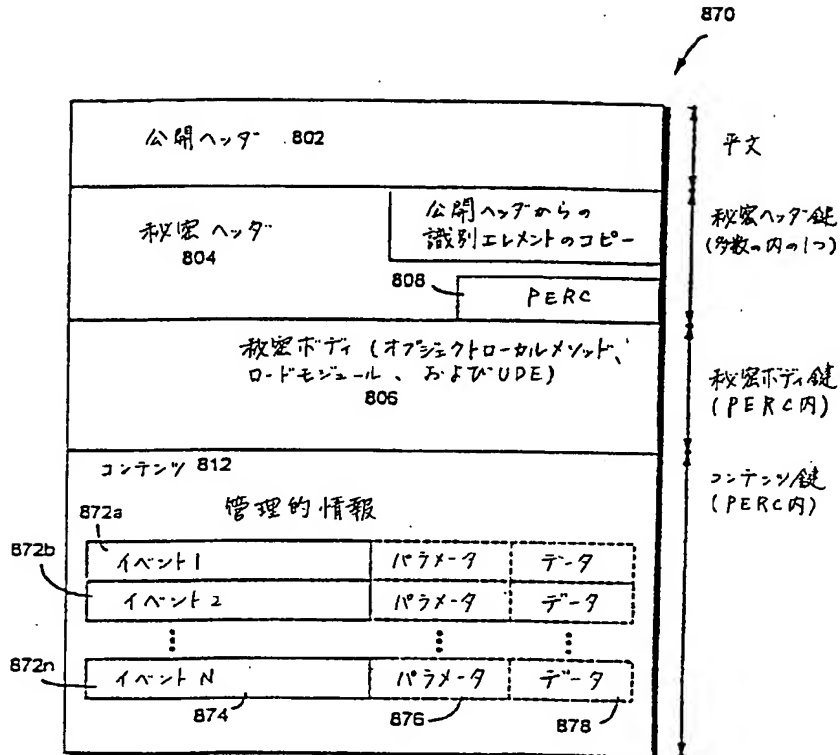 870
公開ヘッダ 802
平文
秘密ヘッダ
804
公開ヘッダからの
識別エレメントのコピー
秘密ヘッダ鍵
(多数の内の1つ)
808
PERC
秘密ボディ (オブジェクトローカルメソッド、
ロードモジュール、およびUDE)
806
秘密ボディ鍵
(PERC内)
コンテンツ 812
コンテンツ鍵
(PERC内)
管理的情報
872a
872b
イベント1 パラメータ データ
イベント2 パラメータ データ
872n
イベントN パラメータ データ
874 876 878